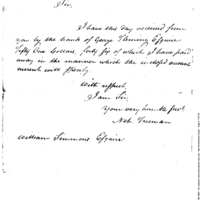 Sir,
I have this day received from
you by the hands of George Fleming Esquire
Fifty One Dollars, forty fiv of which I have paid
away in the manner which the enclosed account
current will specify
With respect,
I am Sir,
Your very hum. Serv.
Neh. Freeman
William Simmons Esquire